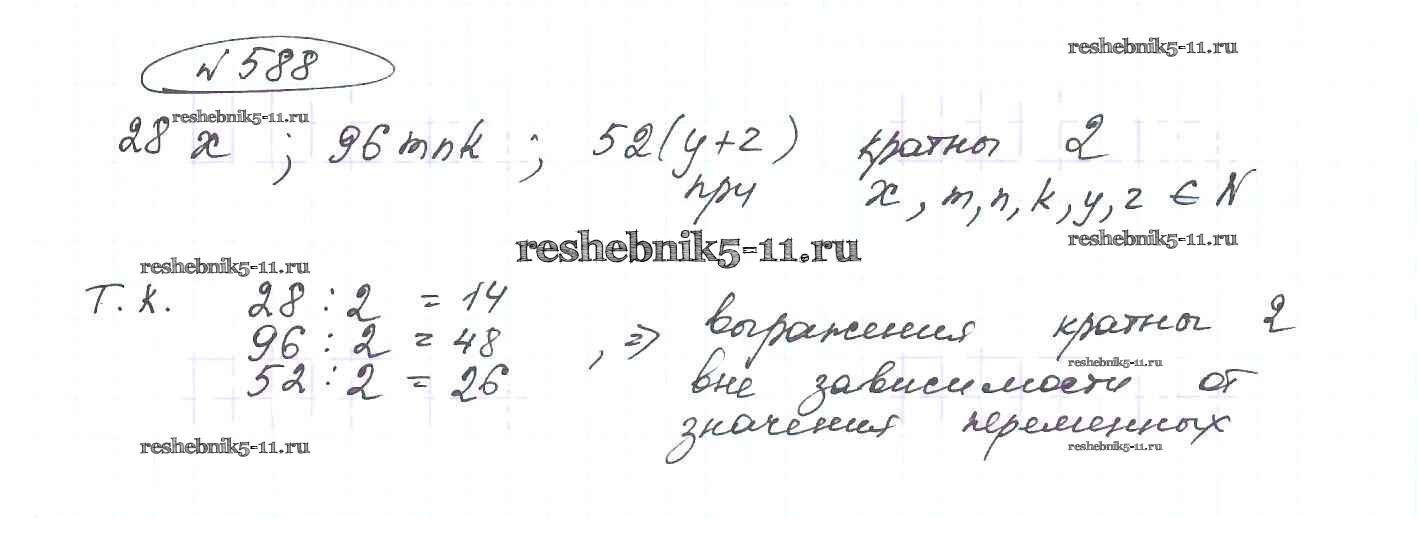 № 588
reshebnik5-11.ru
reshebnik5-11.ru
28x ; 96mnk ; 52(y+z) кратны 2
при x, m, n, k, y, z ∈ N
reshebnik5-11.ru
reshebnik5-11.ru
reshebnik5-11.ru
Т.к. 28 : 2 = 14
96 : 2 = 48
52 : 2 = 26
, ⇒ выражения кратны 2
reshebnik5-11.ru
вне зависимости от
значения переменных
reshebnik5-11.ru
reshebnik5-11.ru